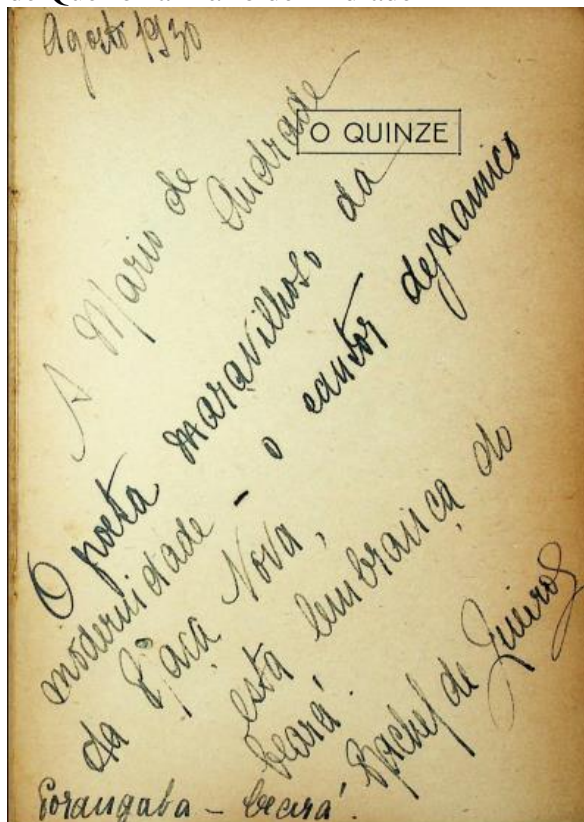 Agosto 1930
O QUINZE
A Mario de
Andrade
O poeta maravilhoso da
modernidade - o cantor dynamico
da Raça Nova,
esta lembrança do
Ceará.
Rachel de Queiroz
Porangaba - Ceará.